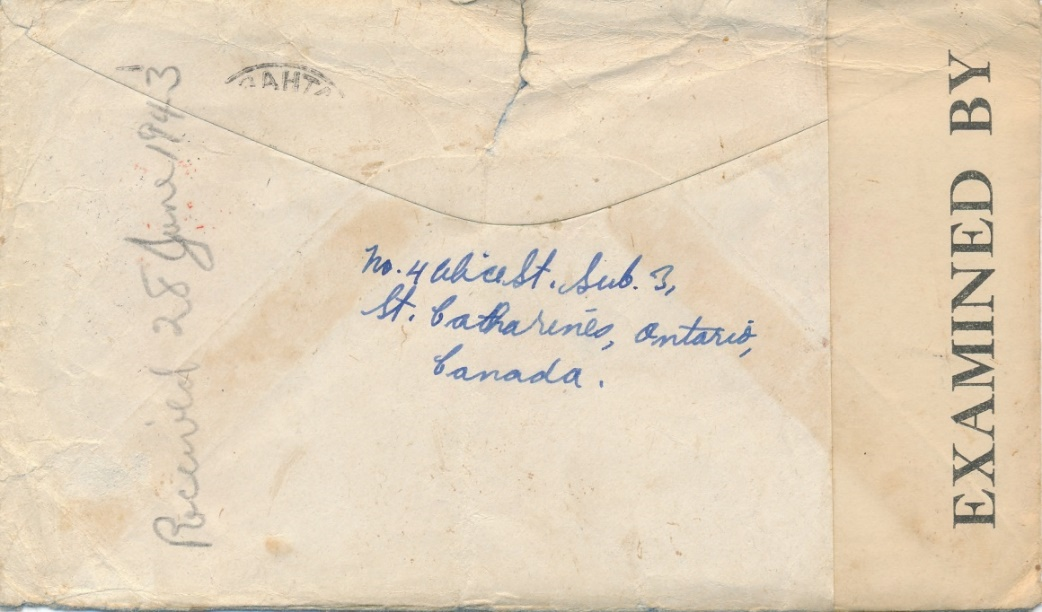 Received 28 June 1943
No. 4 Alice St. Sub. 3,
St. Catharines, Ontario,
Canada.
EXAMINED BY